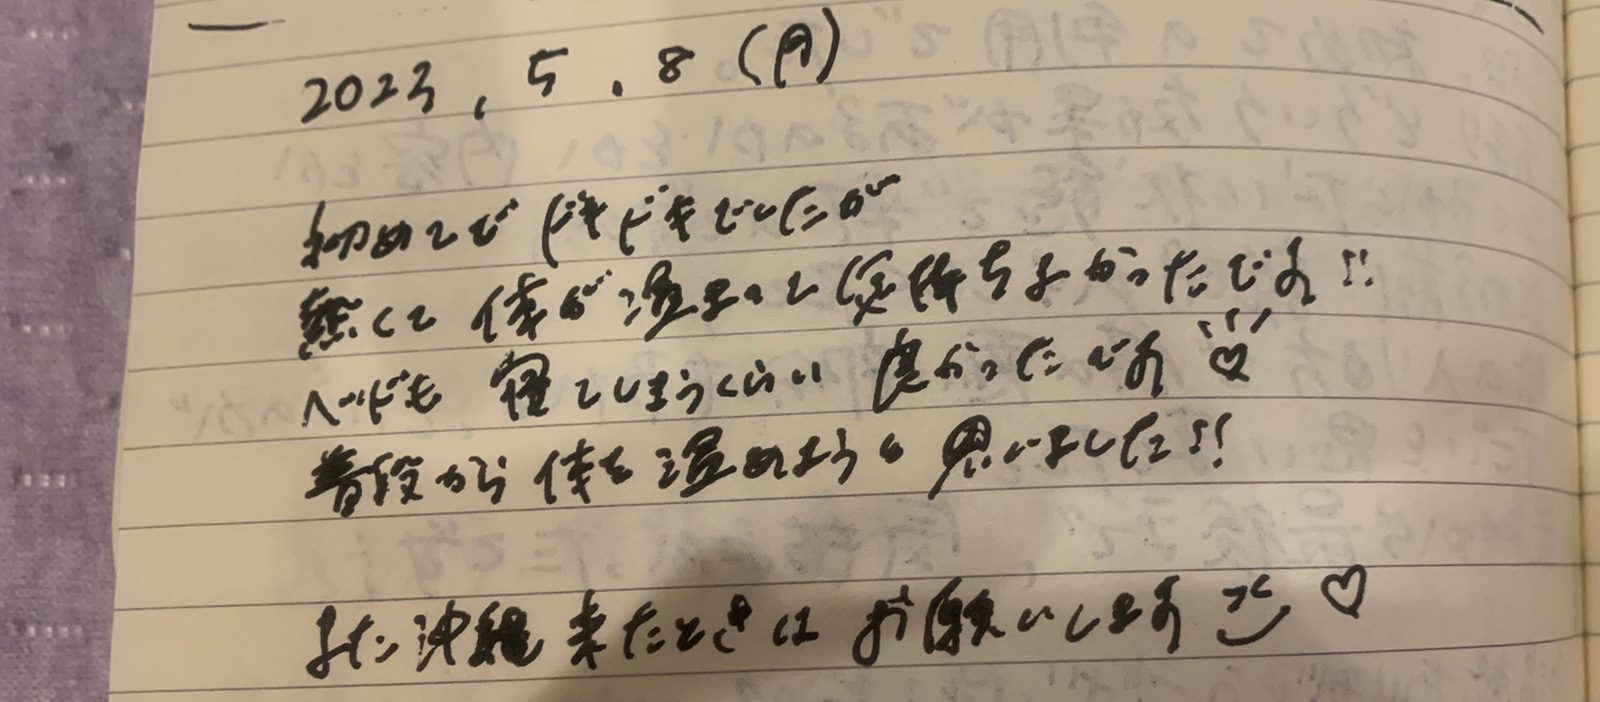 2023.5.8(月)
初めてで ドキドキでしたが
熱くて 体が温まって気持ちよかったです!!
ヘッドも 寝てしまうくらい 良かったです♡
普段から 体を温めようと 思いました!!
また沖縄来たときは お願いします ♡